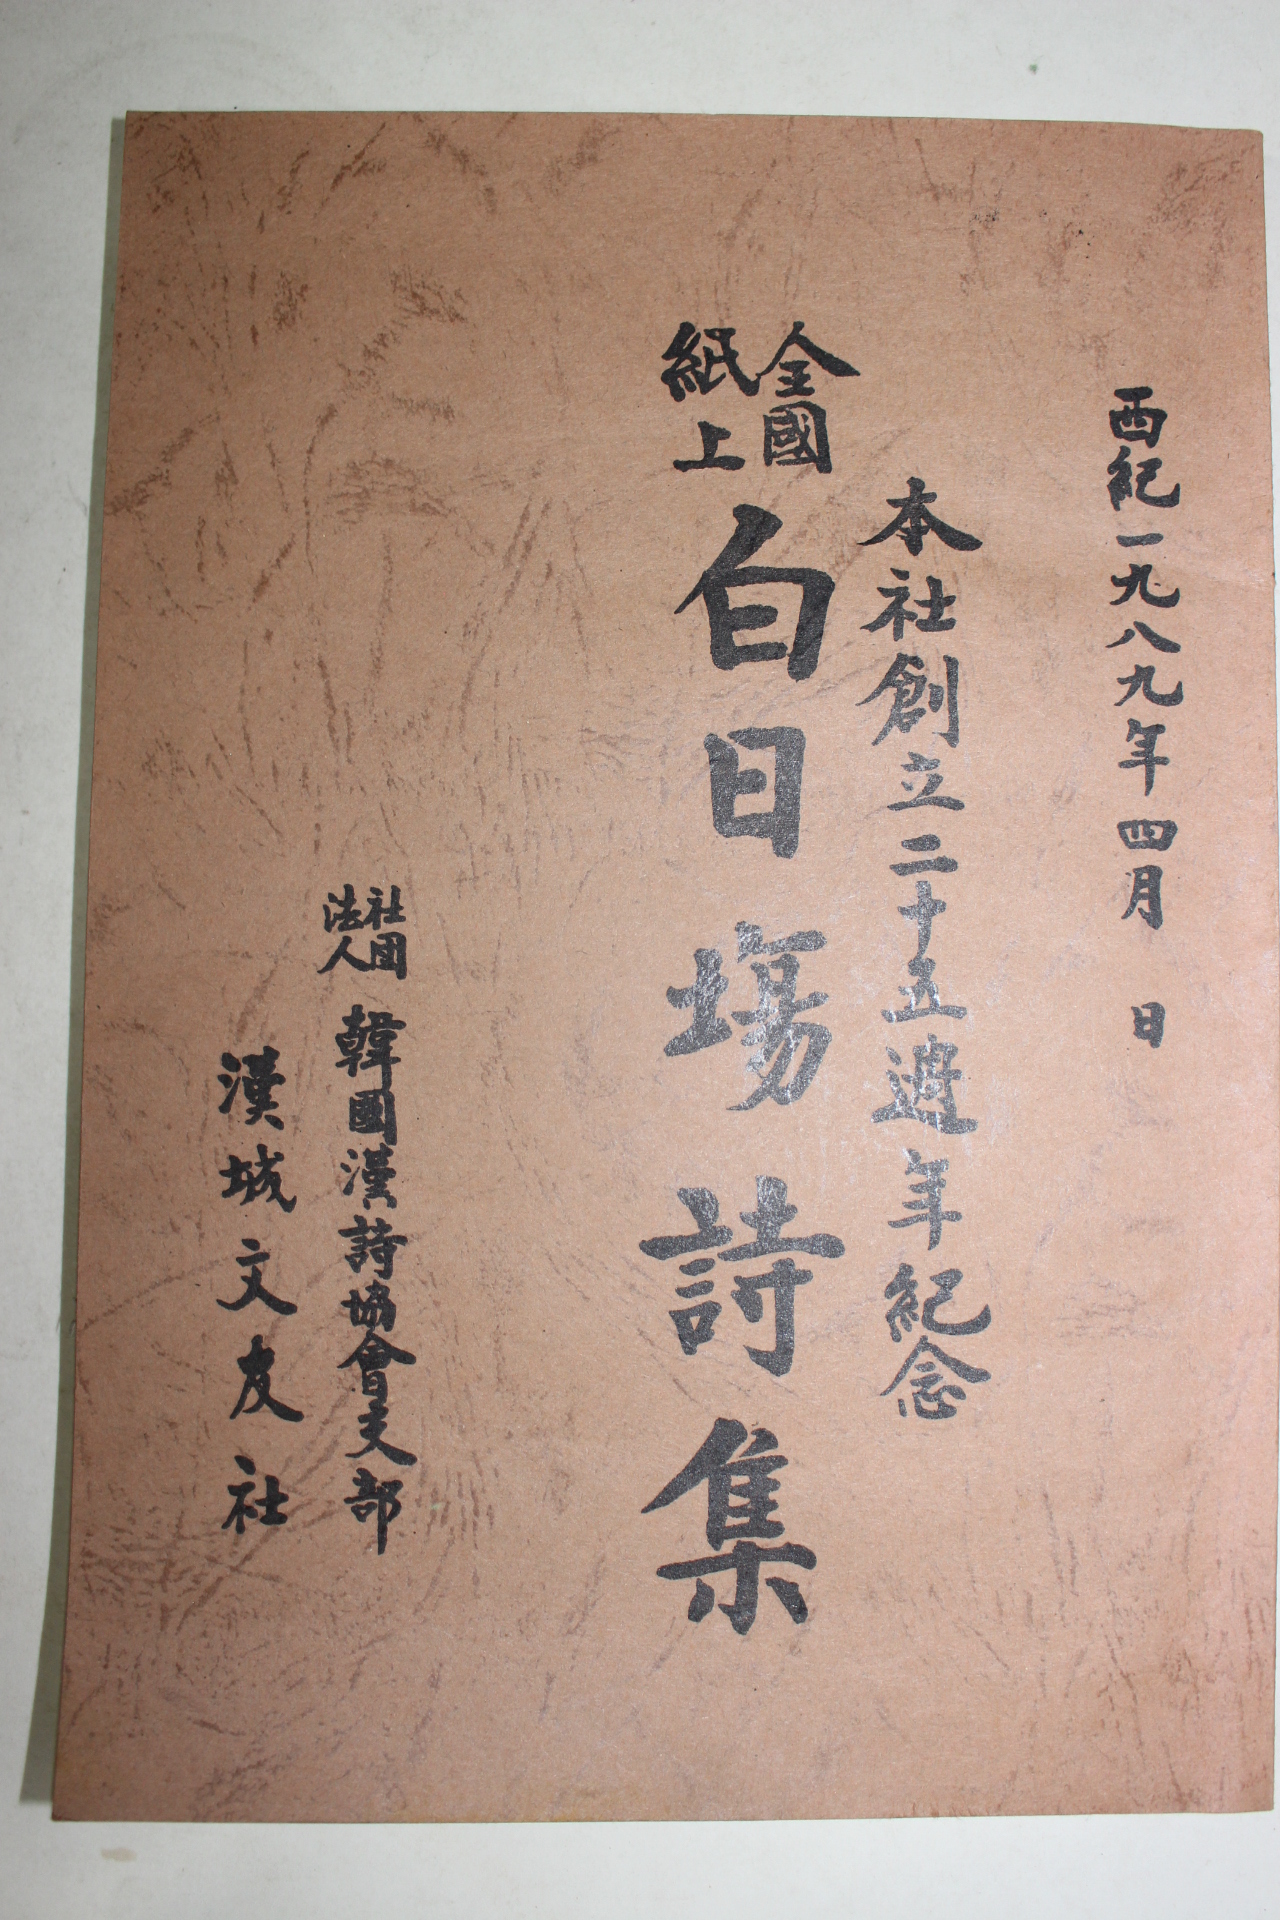 西紀一九八九年四月 日
本社創立二十五週年紀念
全國
紙上
白日場詩集
社團
法人
韓國漢詩協會支部
漢城文友社